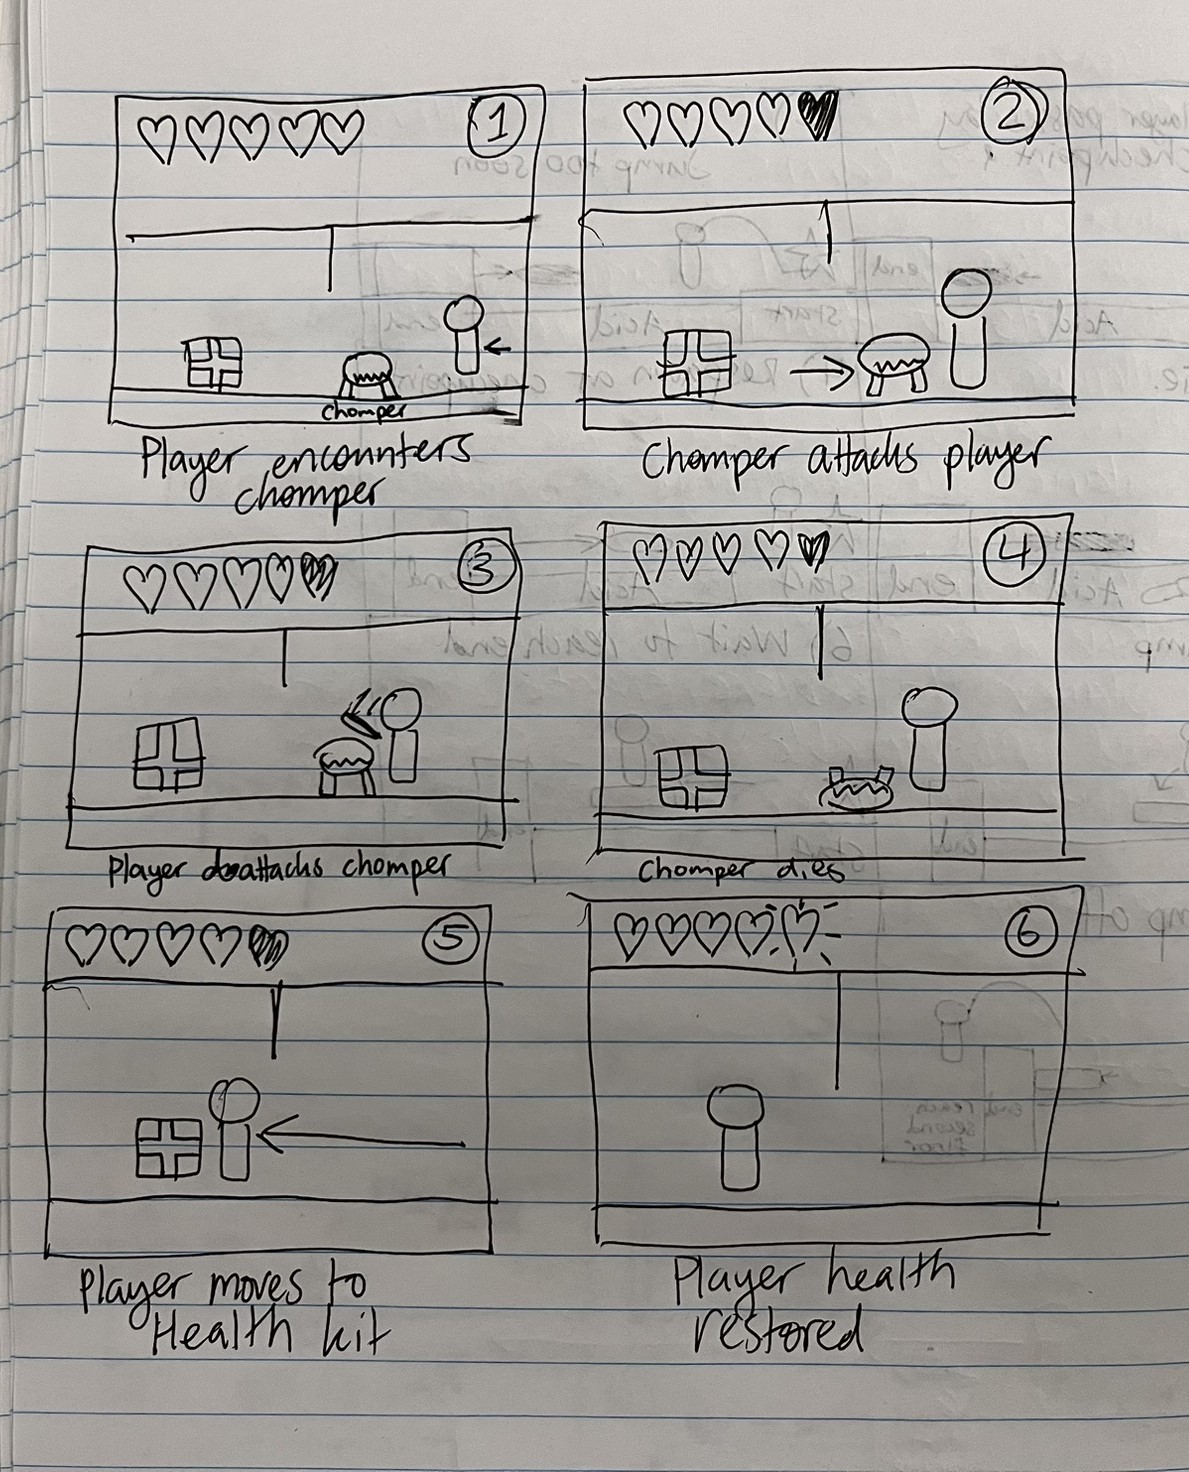 1
2
Chomper
Player encounters
chomper
Chomper attacks player
3
4
Player attacks chomper
Chomper dies
5
6
Player moves to
Health kit
Player health
restored